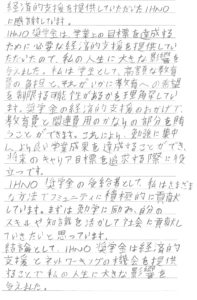 経済的支援を提供していただいたIHNO
に感謝しています。
IHNO奨学金は、学業上の目標を達成する
ために必要な経済的支援を提供してい
ただいたので、私の人生に大きな影響を
与えました。私は学生として、高等な教育
の負担と、それがいかに教育への希望
を制限する可能性があるかを理解してい
ます。奨学金の経済的支援のおかげで、
教育費と関連費用のかなりの部分を賄
うことができます。これにより、勉強に集中
し、より良い学業成果を達成することができ、
将来のキャリア目標を追求する際に役
立つです。
IHNO 奨学金の受給者として、私はさまざま
な方法でコミュニティに積極的に貢献
しています。まずは勉学に励み、自分の
スキルや知識を活かして社会に貢献し
ていきたいと思っています。
結論として、IHNO 奨学金は経済的
支援とネットワーキングの機会を提供
することで私の人生に大きな影響を
与えました。